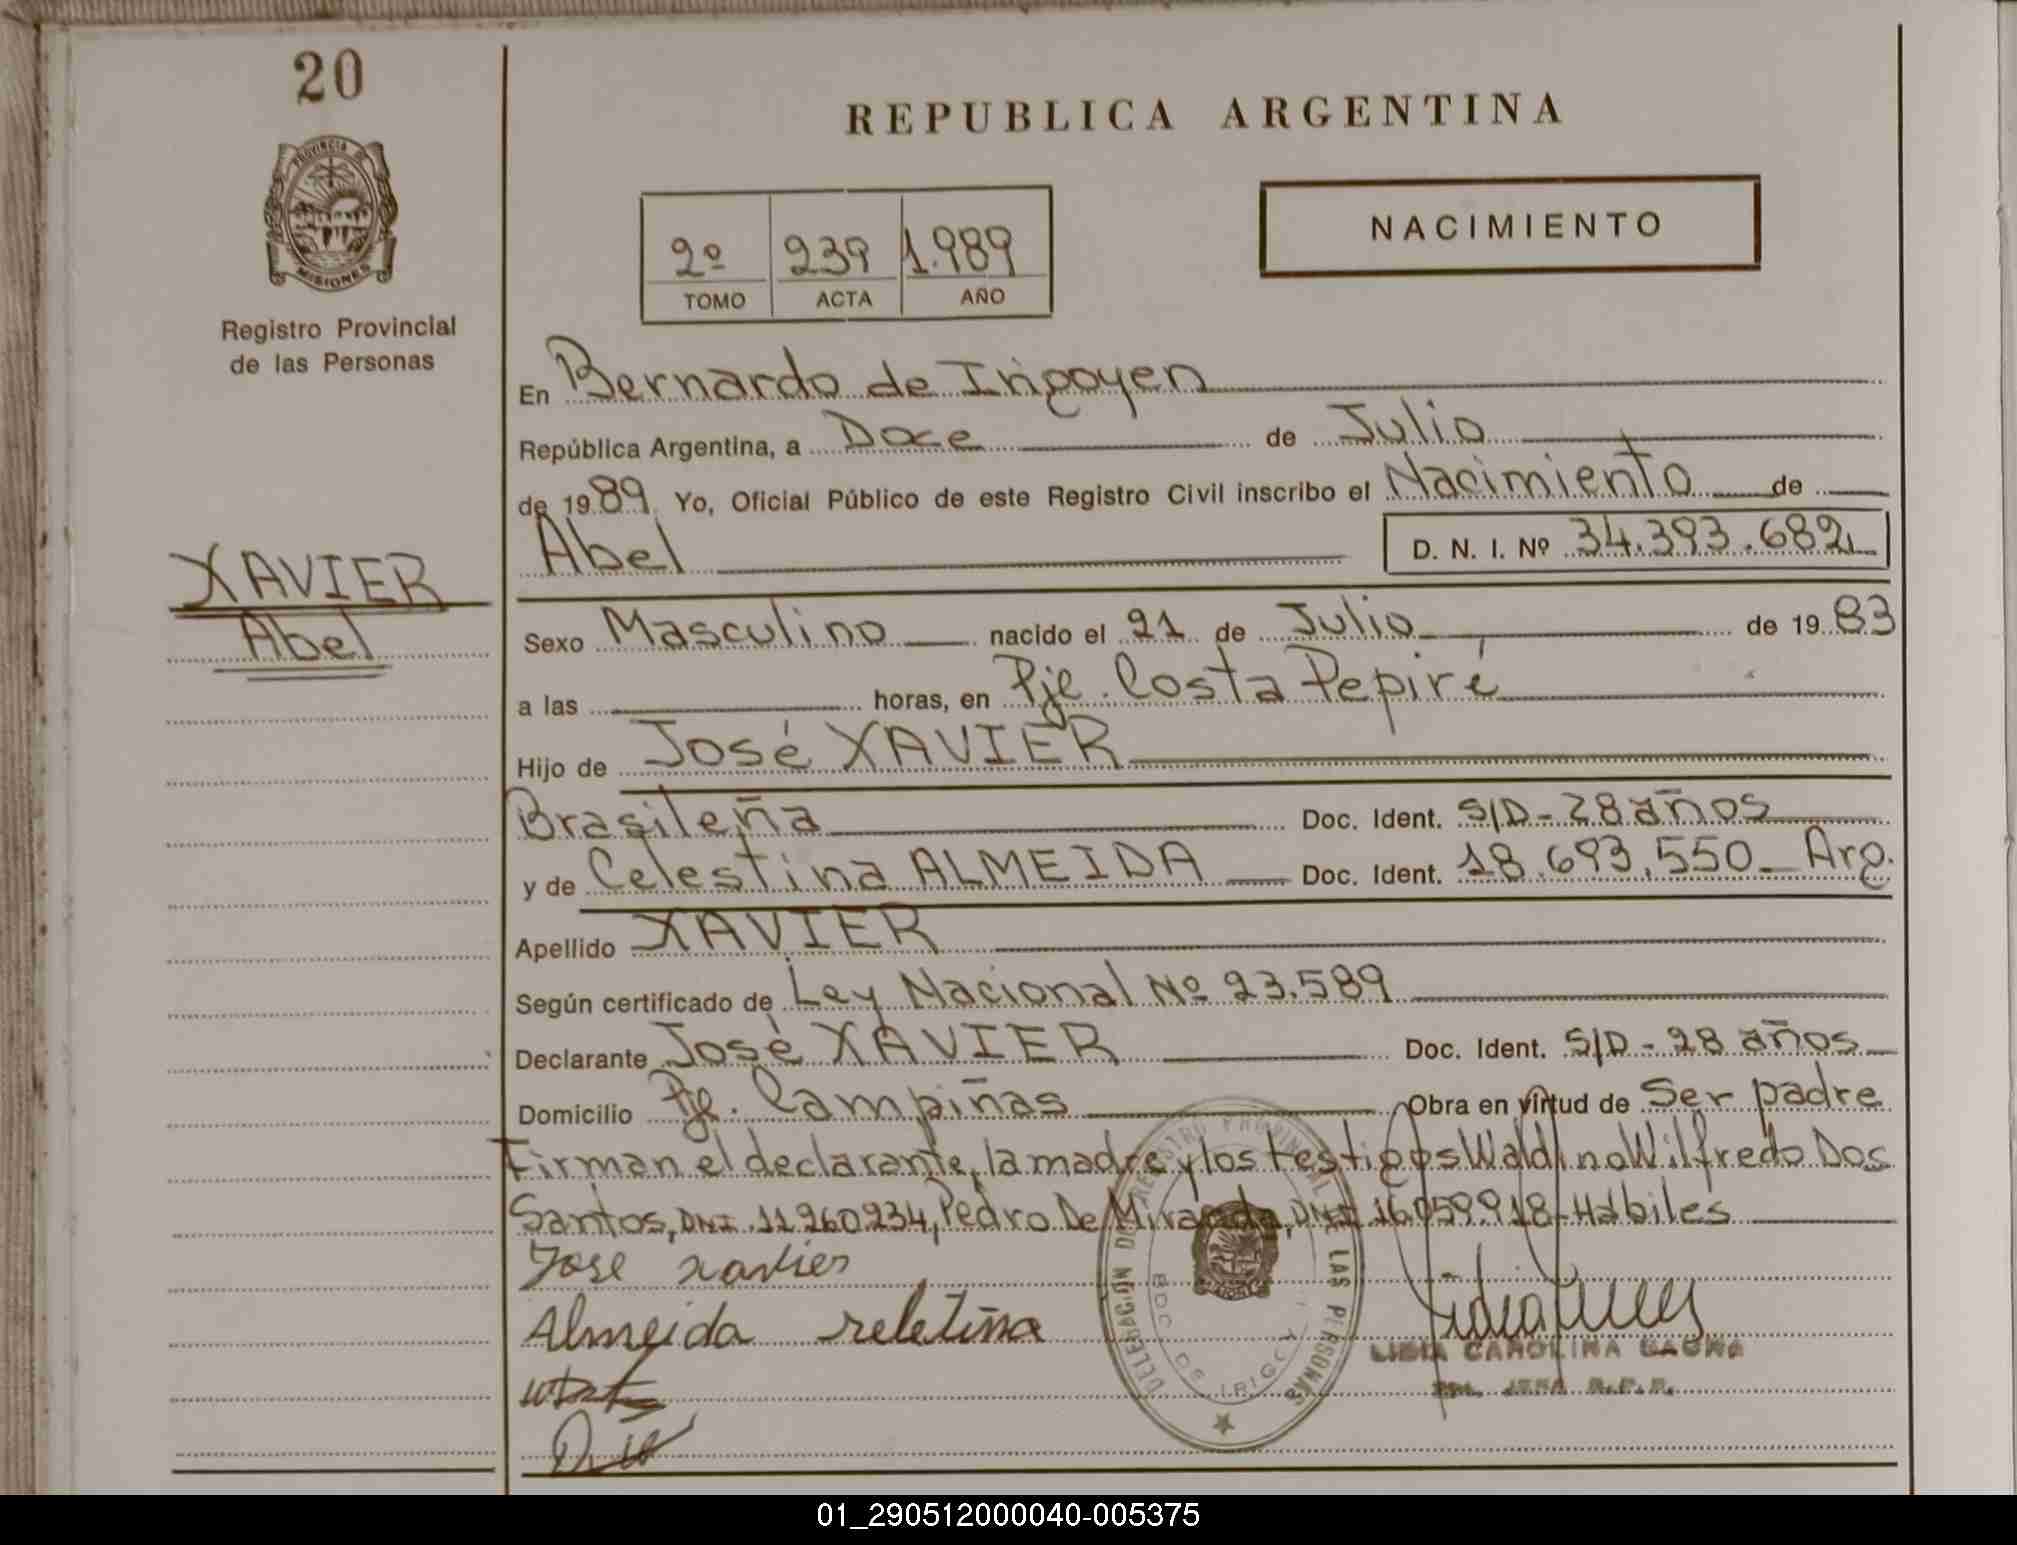 20
PROVINCIA DE
MISIONES
Registro Provincial
de las Personas
XAVIER
Abel
REPUBLICA ARGENTINA
2º 239 1.989
TOMO ACTA AÑO
NACIMIENTO
En Bernardo de Irigoyen
República Argentina, a Doce de Julio
de 1989 Yo, Oficial Público de este Registro Civil inscribo el Nacimiento de
Abel D. N. I. Nº 34.393.682
Sexo Masculino nacido el 21 de Julio de 1983
a las horas, en Pje. Costa Pepirí
Hijo de José XAVIER
Brasileña Doc. Ident. S/D - 28 años
y de Celestina ALMEIDA Doc. Ident. 18.693.550 - Arg.
Apellido XAVIER
Según certificado de Ley Nacional Nº 23.589
Declarante José XAVIER Doc. Ident. S/D - 28 años
Domicilio Pje. Campiñas Obra en virtud de Ser padre
Firman el declarante, la madre y los testigos Waldino Wilfredo Dos
Santos, DNI. 11.260.234, Pedro De Miranda, DNI 16.059.918 - Hábiles
Jose xavier
Almeida
DELEGACIÓN DE REGISTRO PROVINCIAL DE LAS PERSONAS
BDO. DE IRIGOYEN
CAROLINA
01_290512000040-005375